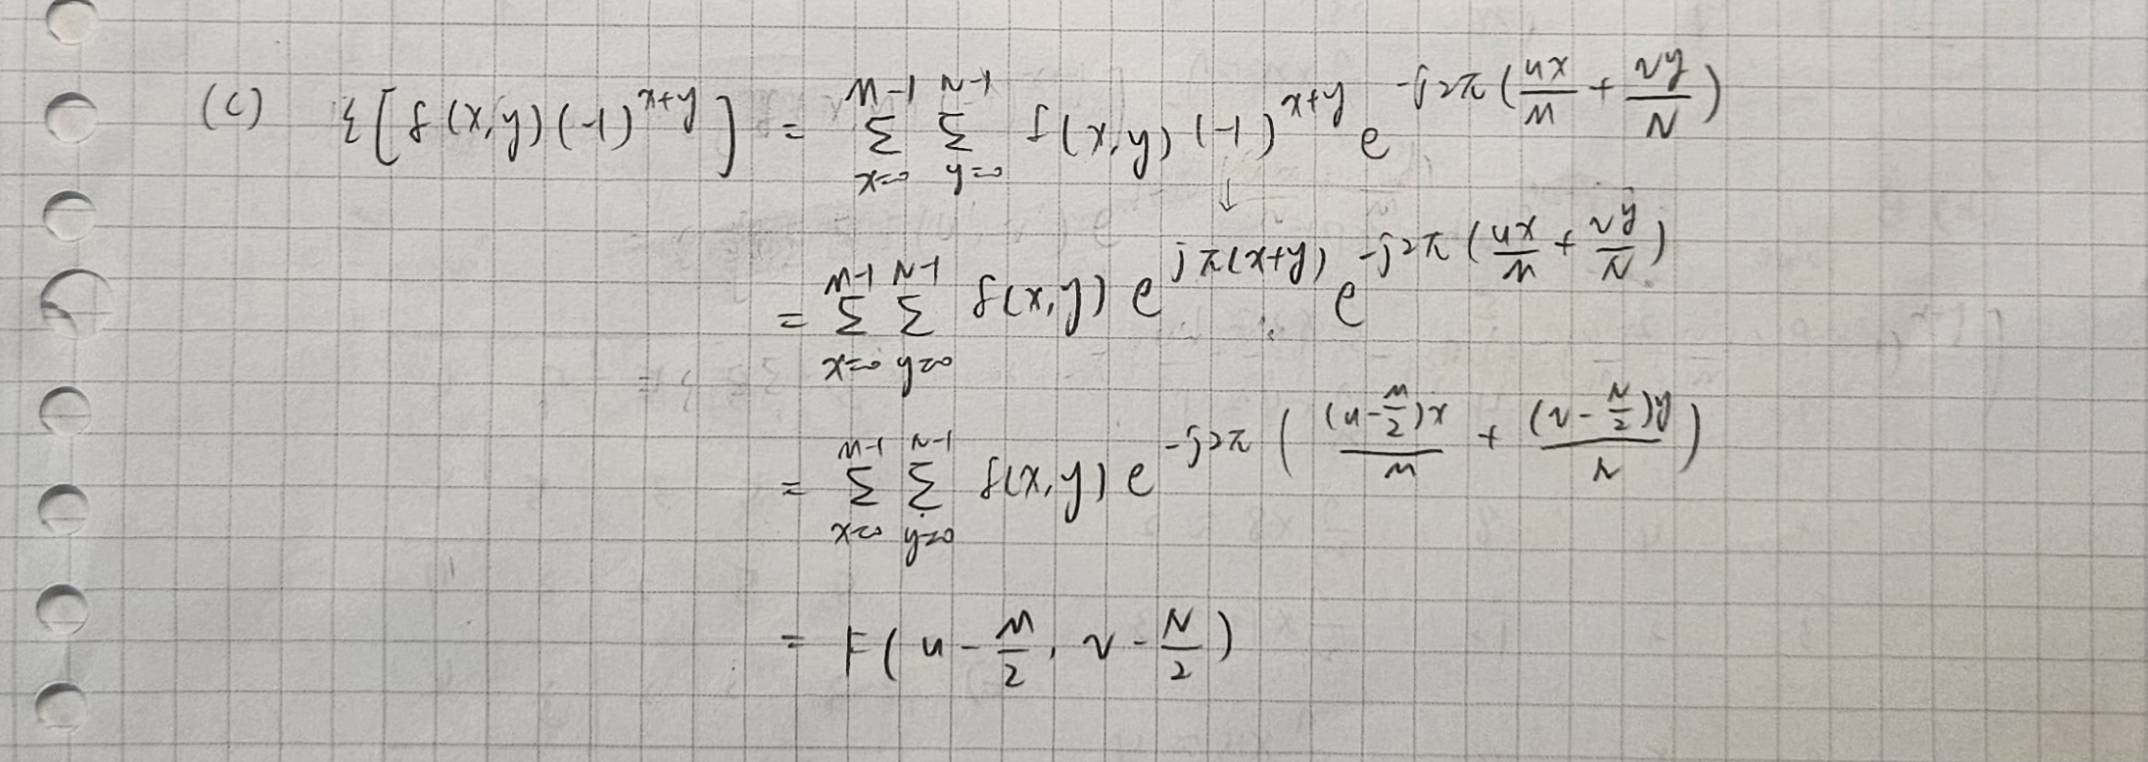 (c) ξ[f(x,y)(-1)^{x+y}] = \sum_{x=0}^{M-1} \sum_{y=0}^{N-1} f(x,y)(-1)^{x+y} e^{-j2π(\frac{ux}{M} + \frac{vy}{N})}
↓
= \sum_{x=0}^{M-1} \sum_{y=0}^{N-1} f(x,y) e^{jπ(x+y)} e^{-j2π(\frac{ux}{M} + \frac{vy}{N})}
= \sum_{x=0}^{M-1} \sum_{y=0}^{N-1} f(x,y) e^{-j2π(\frac{(u-\frac{M}{2})x}{M} + \frac{(v-\frac{N}{2})y}{N})}
= F(u - \frac{M}{2}, v - \frac{N}{2})